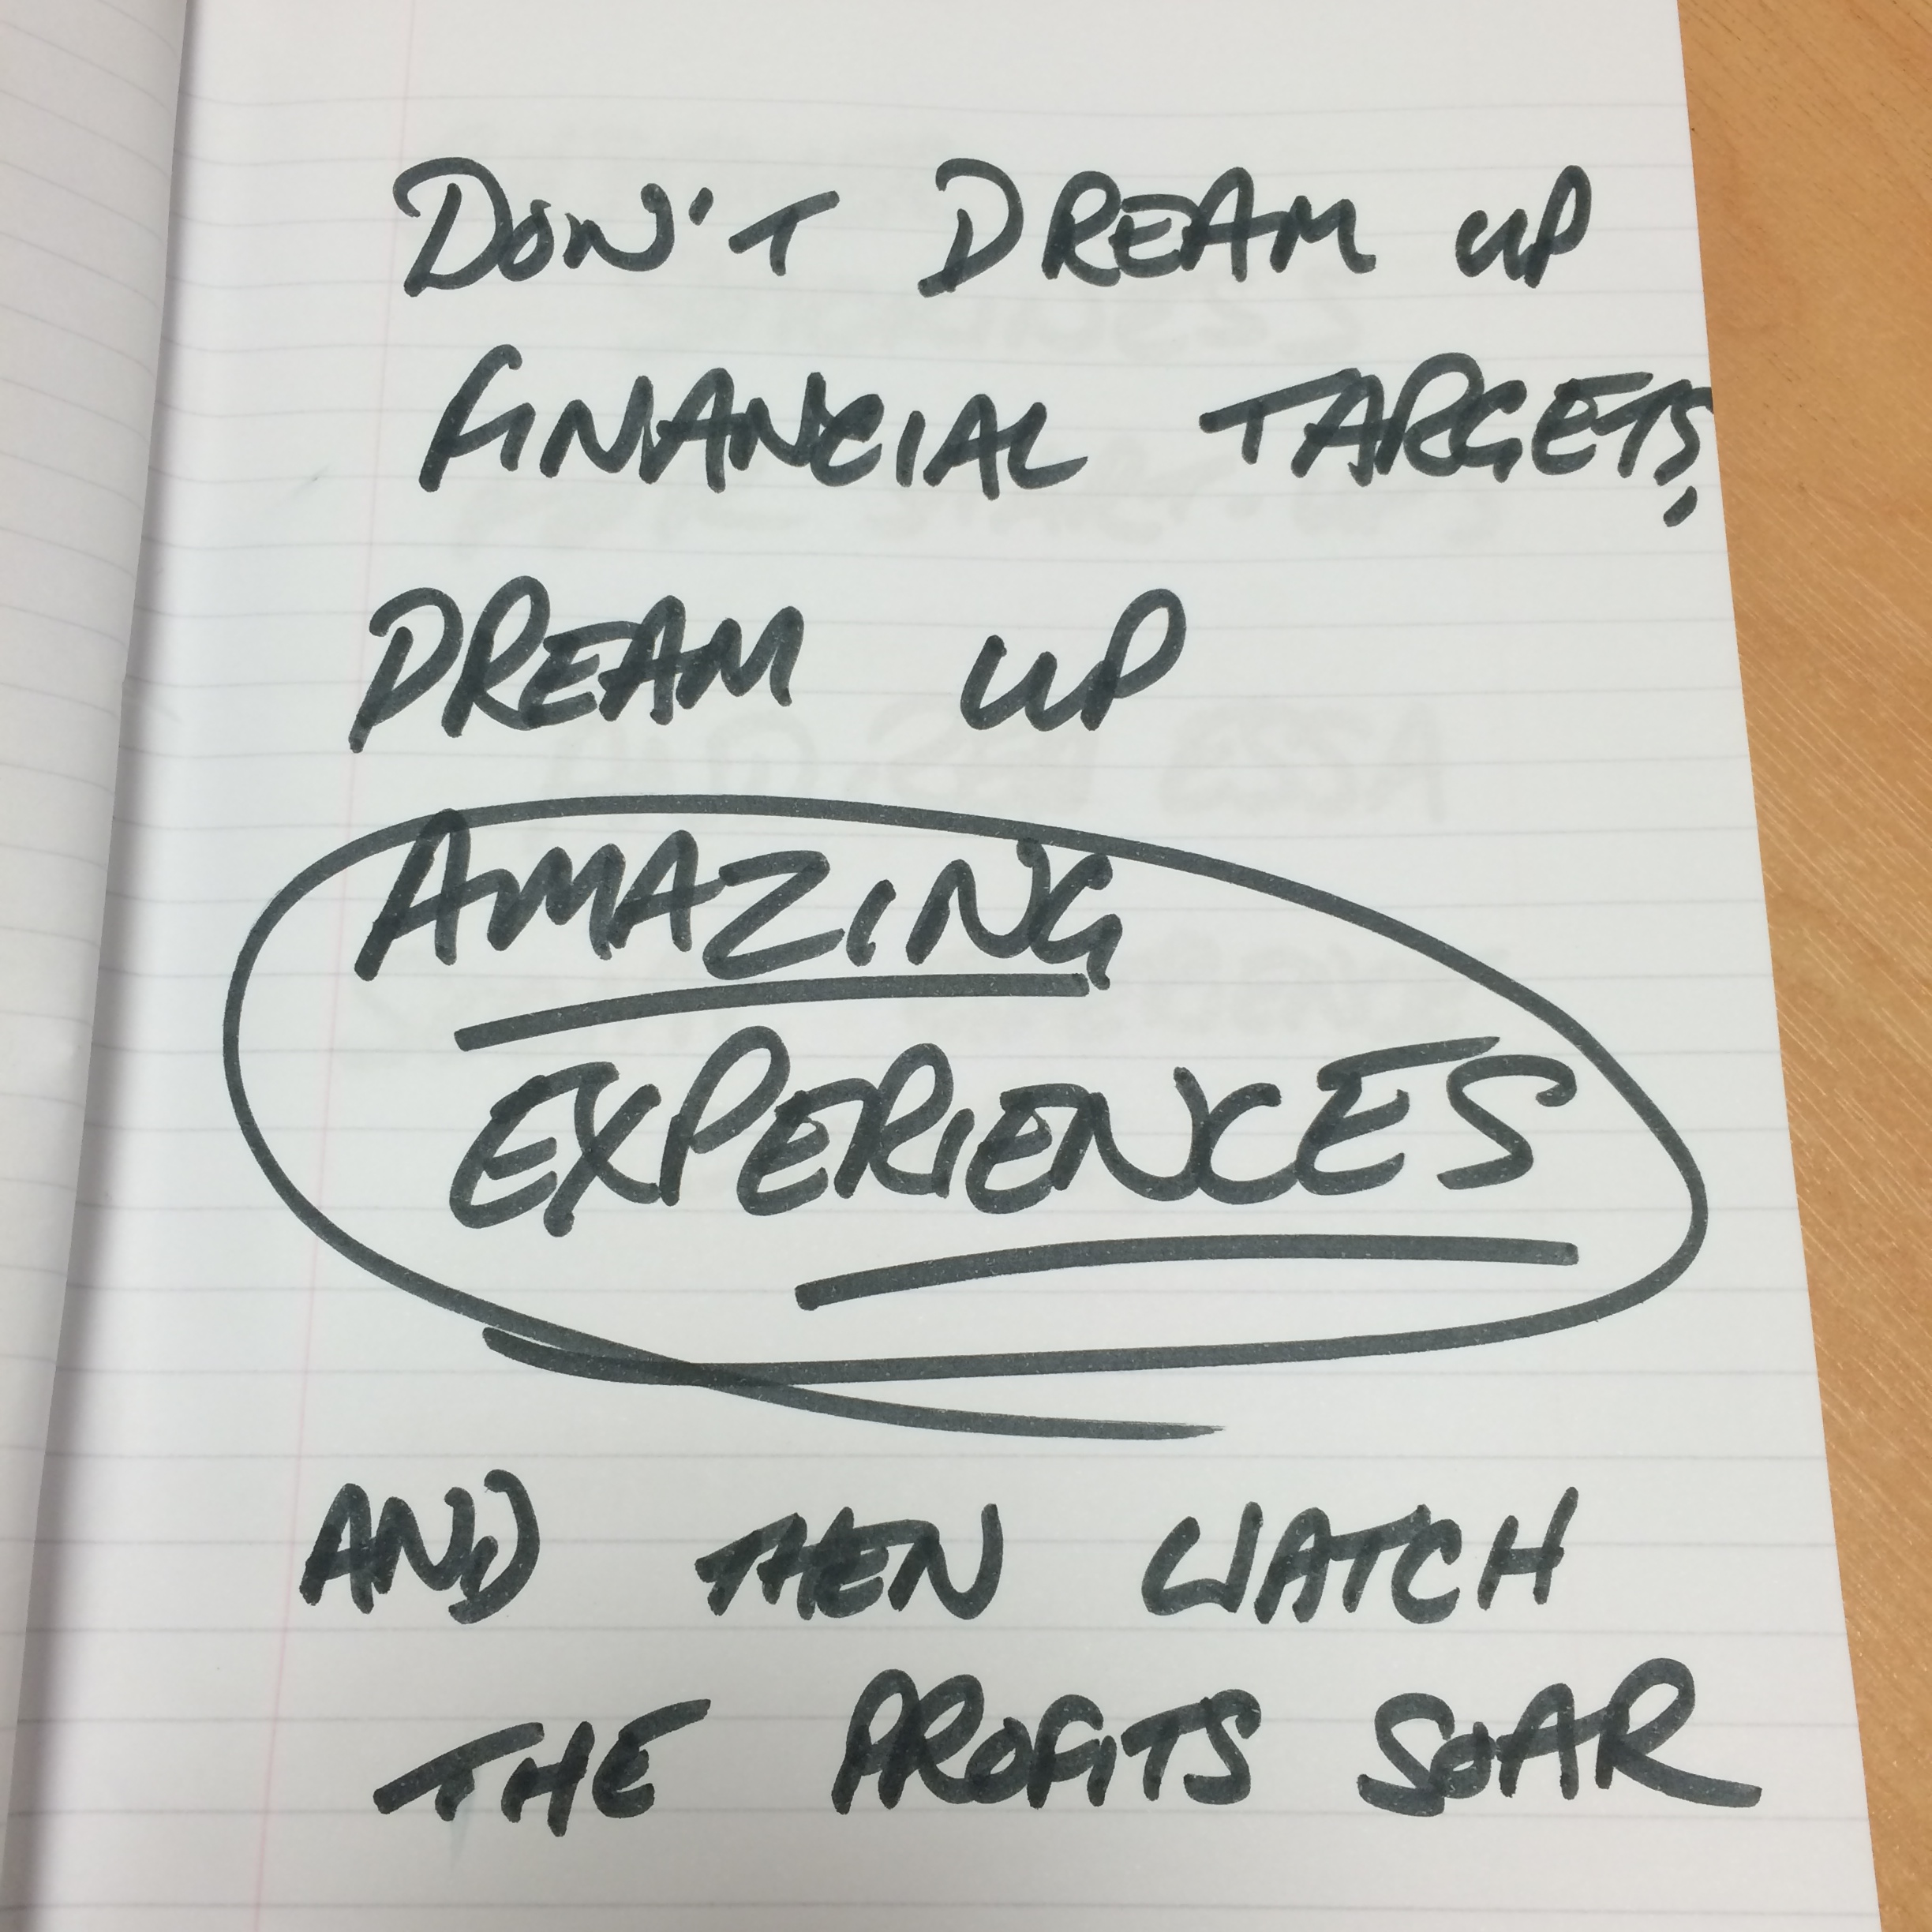 DON'T DREAM UP
FINANCIAL TARGETS,
DREAM UP
AMAZING
EXPERIENCES
AND THEN WATCH
THE PROFITS SOAR